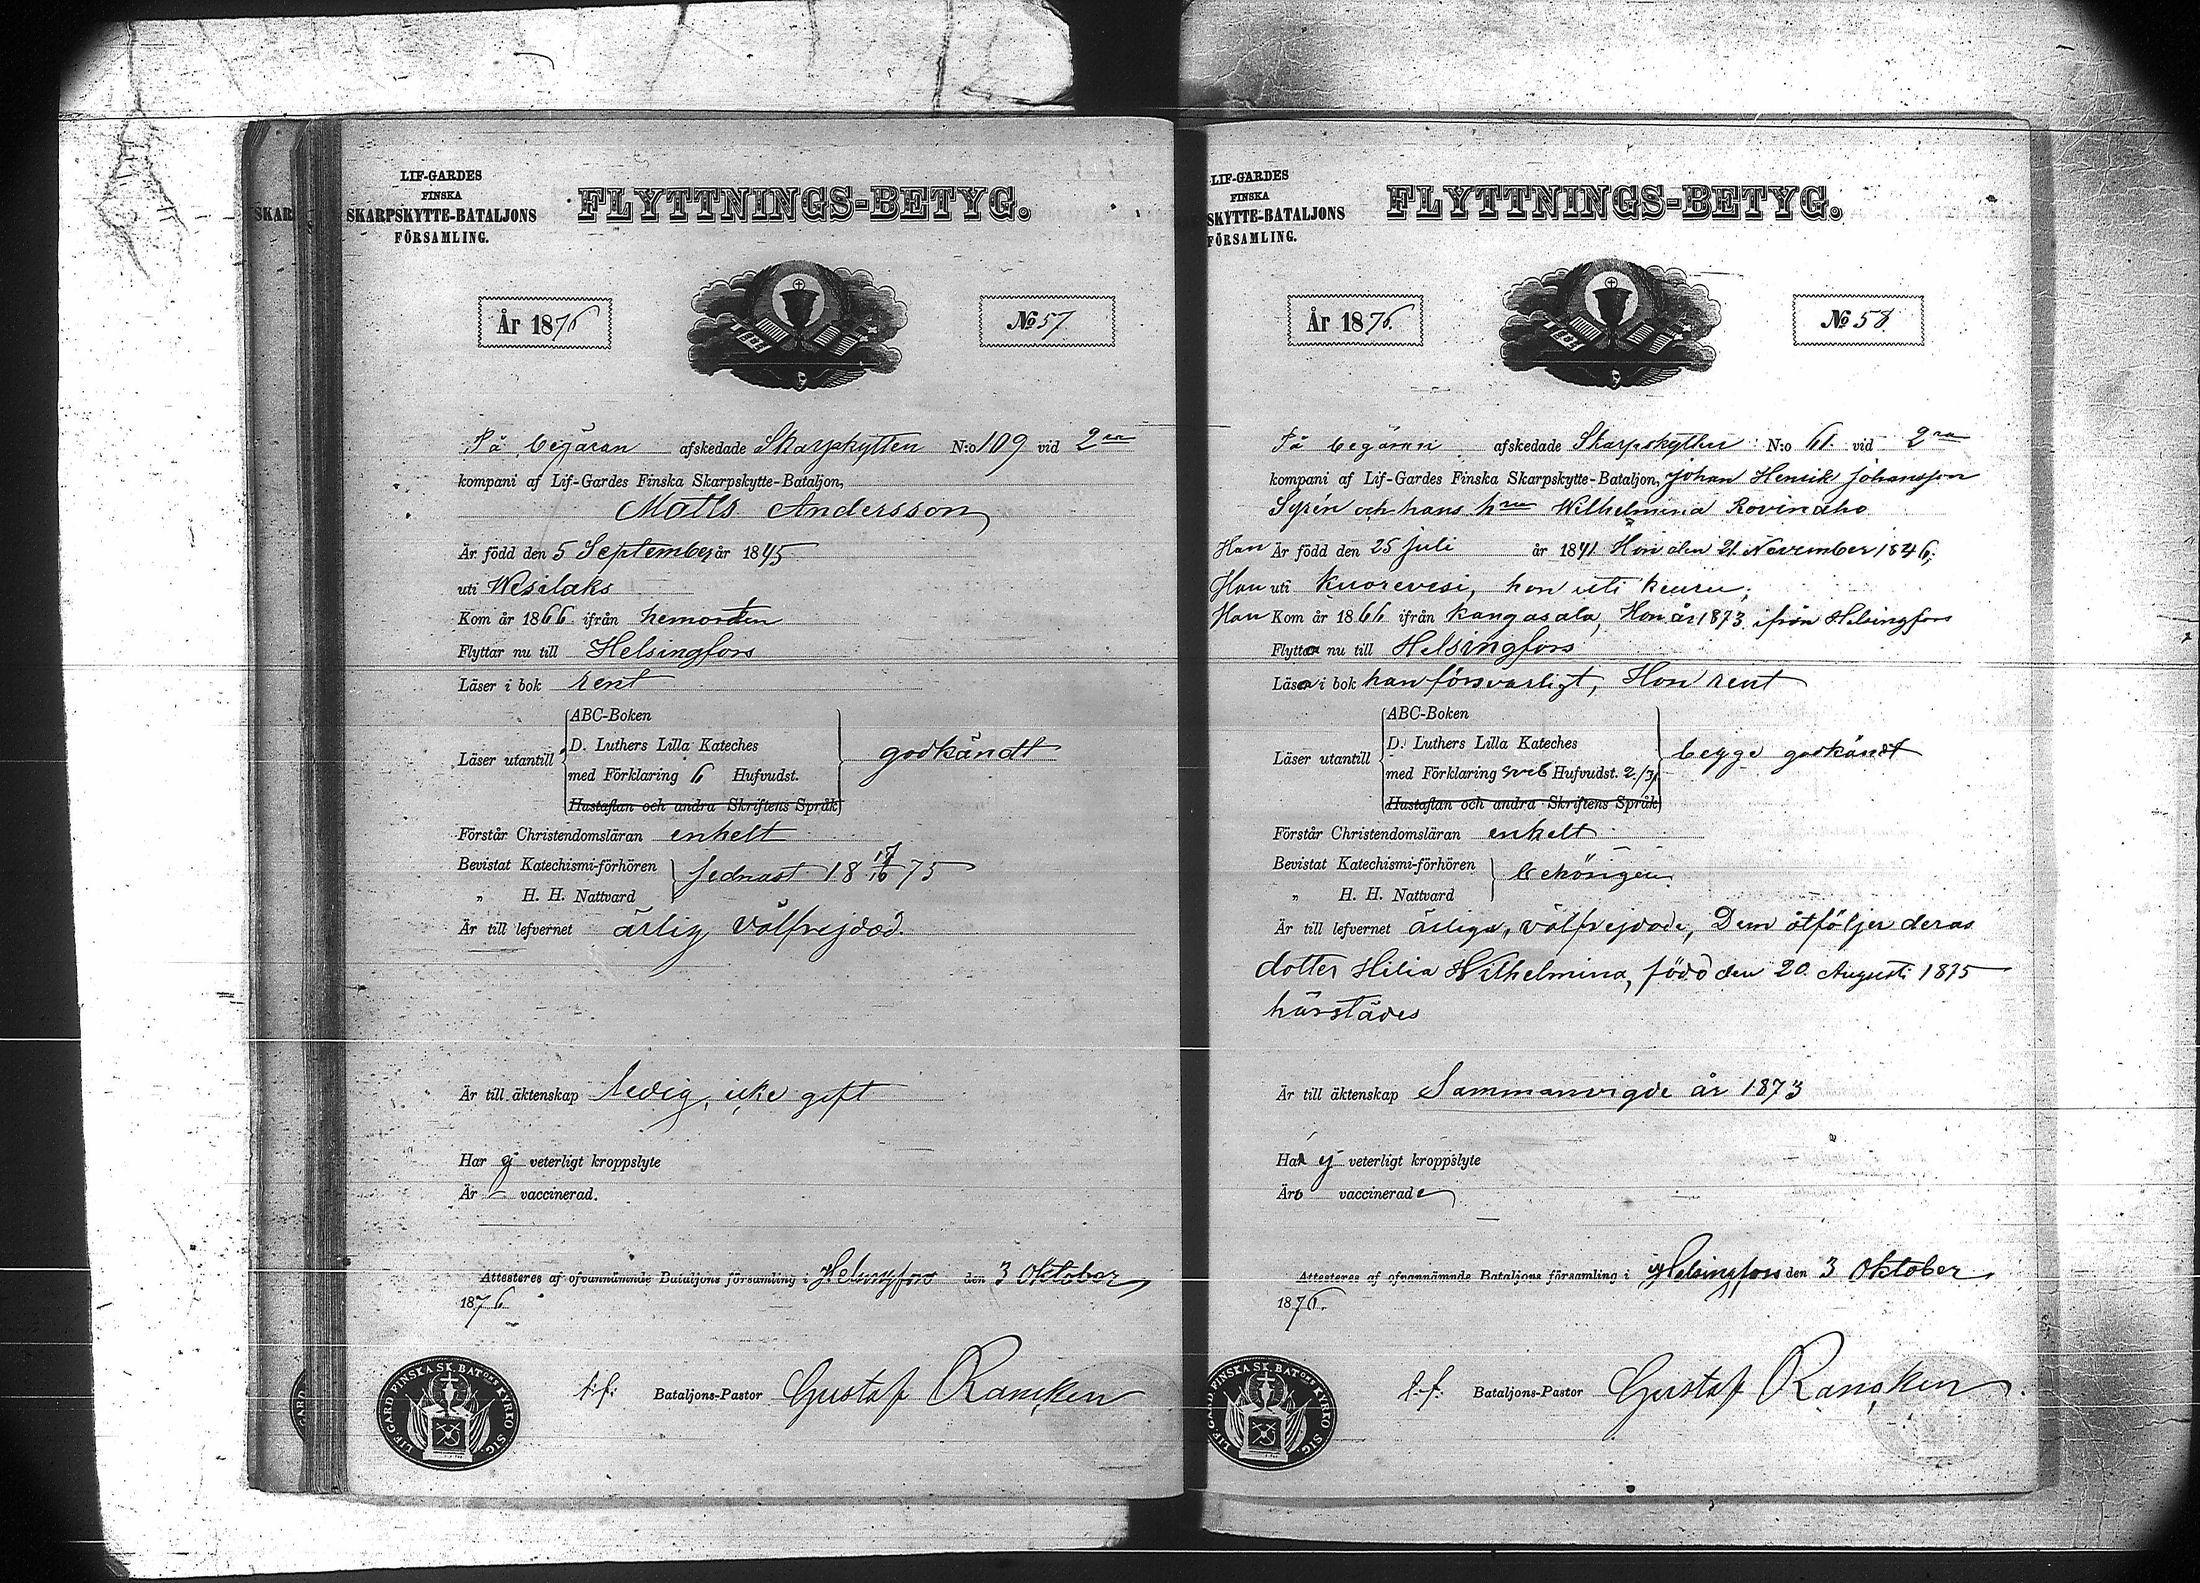 SKAR
LIF-GARDES
FINSKA
SKARPSKYTTE-BATALJONS
FÖRSAMLING.
FLYTTNINGS-BETYG.
År 1876
No 57
På begäran afskedade Skarpskytten N:o 109 vid 2ra
kompani af Lif-Gardes Finska Skarpskytte-Bataljon,
Matts Andersson
Är född den 5 September år 1845
uti Wesilaks
Kom år 1866 ifrån hemorten
Flyttar nu till Helsingfors
Läser i bok rent
ABC-Boken
Läser utantill D. Luthers Lilla Kateches godkändt
med Förklaring 6 Hufvudst.
Hustaflan och andra Skriftens Språk
Förstår Christendomsläran enkelt
Bevistat Katechismi-förhören
„ H. H. Nattvard sednast 18 17/10 75
Är till lefvernet ärlig välfrejdad.
Är till äktenskap ledig, icke gift
Har ej veterligt kroppslyte
Är vaccinerad.
Attesteras af ofvannämnde Bataljons församling i Helsingfors den 3 Oktober
1876.
LIF-GARD. FINSKA SK. BATONS KYRKO SIG.
t.f. Bataljons-Pastor Gustaf Rancken
LIF-GARDES
FINSKA
SKYTTE-BATALJONS
FÖRSAMLING.
FLYTTNINGS-BETYG.
År 1876.
No 58
På begäran afskedade Skarpskytten N:o 61 vid 2ra
kompani af Lif-Gardes Finska Skarpskytte-Bataljon, Johan Henrik Johansson
Syrén och hans hru Wilhelmina Rovinaho
Han Är född den 25 Juli år 1841. Hon den 21 November 1846;
Han uti Kuorevesi, hon uti Keuru;
Han Kom år 1866 ifrån Kangasala, Hon år 1873 ifrån Helsingfors
Flytta nu till Helsingfors
Läsa i bok han försvarligt, Hon rent
ABC-Boken
Läser utantill D. Luthers Lilla Kateches begge godkändt
med Förklaring Hufvudst.
Hustaflan och andra Skriftens Språk
Förstår Christendomsläran enkelt
Bevistat Katechismi-förhören
„ H. H. Nattvard behörigen.
Är till lefvernet ärliga, välfrejdade, Dem åtföljer deras
dotter Hilia Wilhelmina, född den 20 Augusti 1875
härstädes
Är till äktenskap Sammanvigde år 1873
Ha ej veterligt kroppslyte
Äro vaccinerade
Attesteras af ofvannämnde Bataljons församling i Helsingfors den 3 Oktober
1876.
LIF-GARD FINSKA SK. BATONS KYRKO SIG.
t.f. Bataljons-Pastor Gustaf Rancken